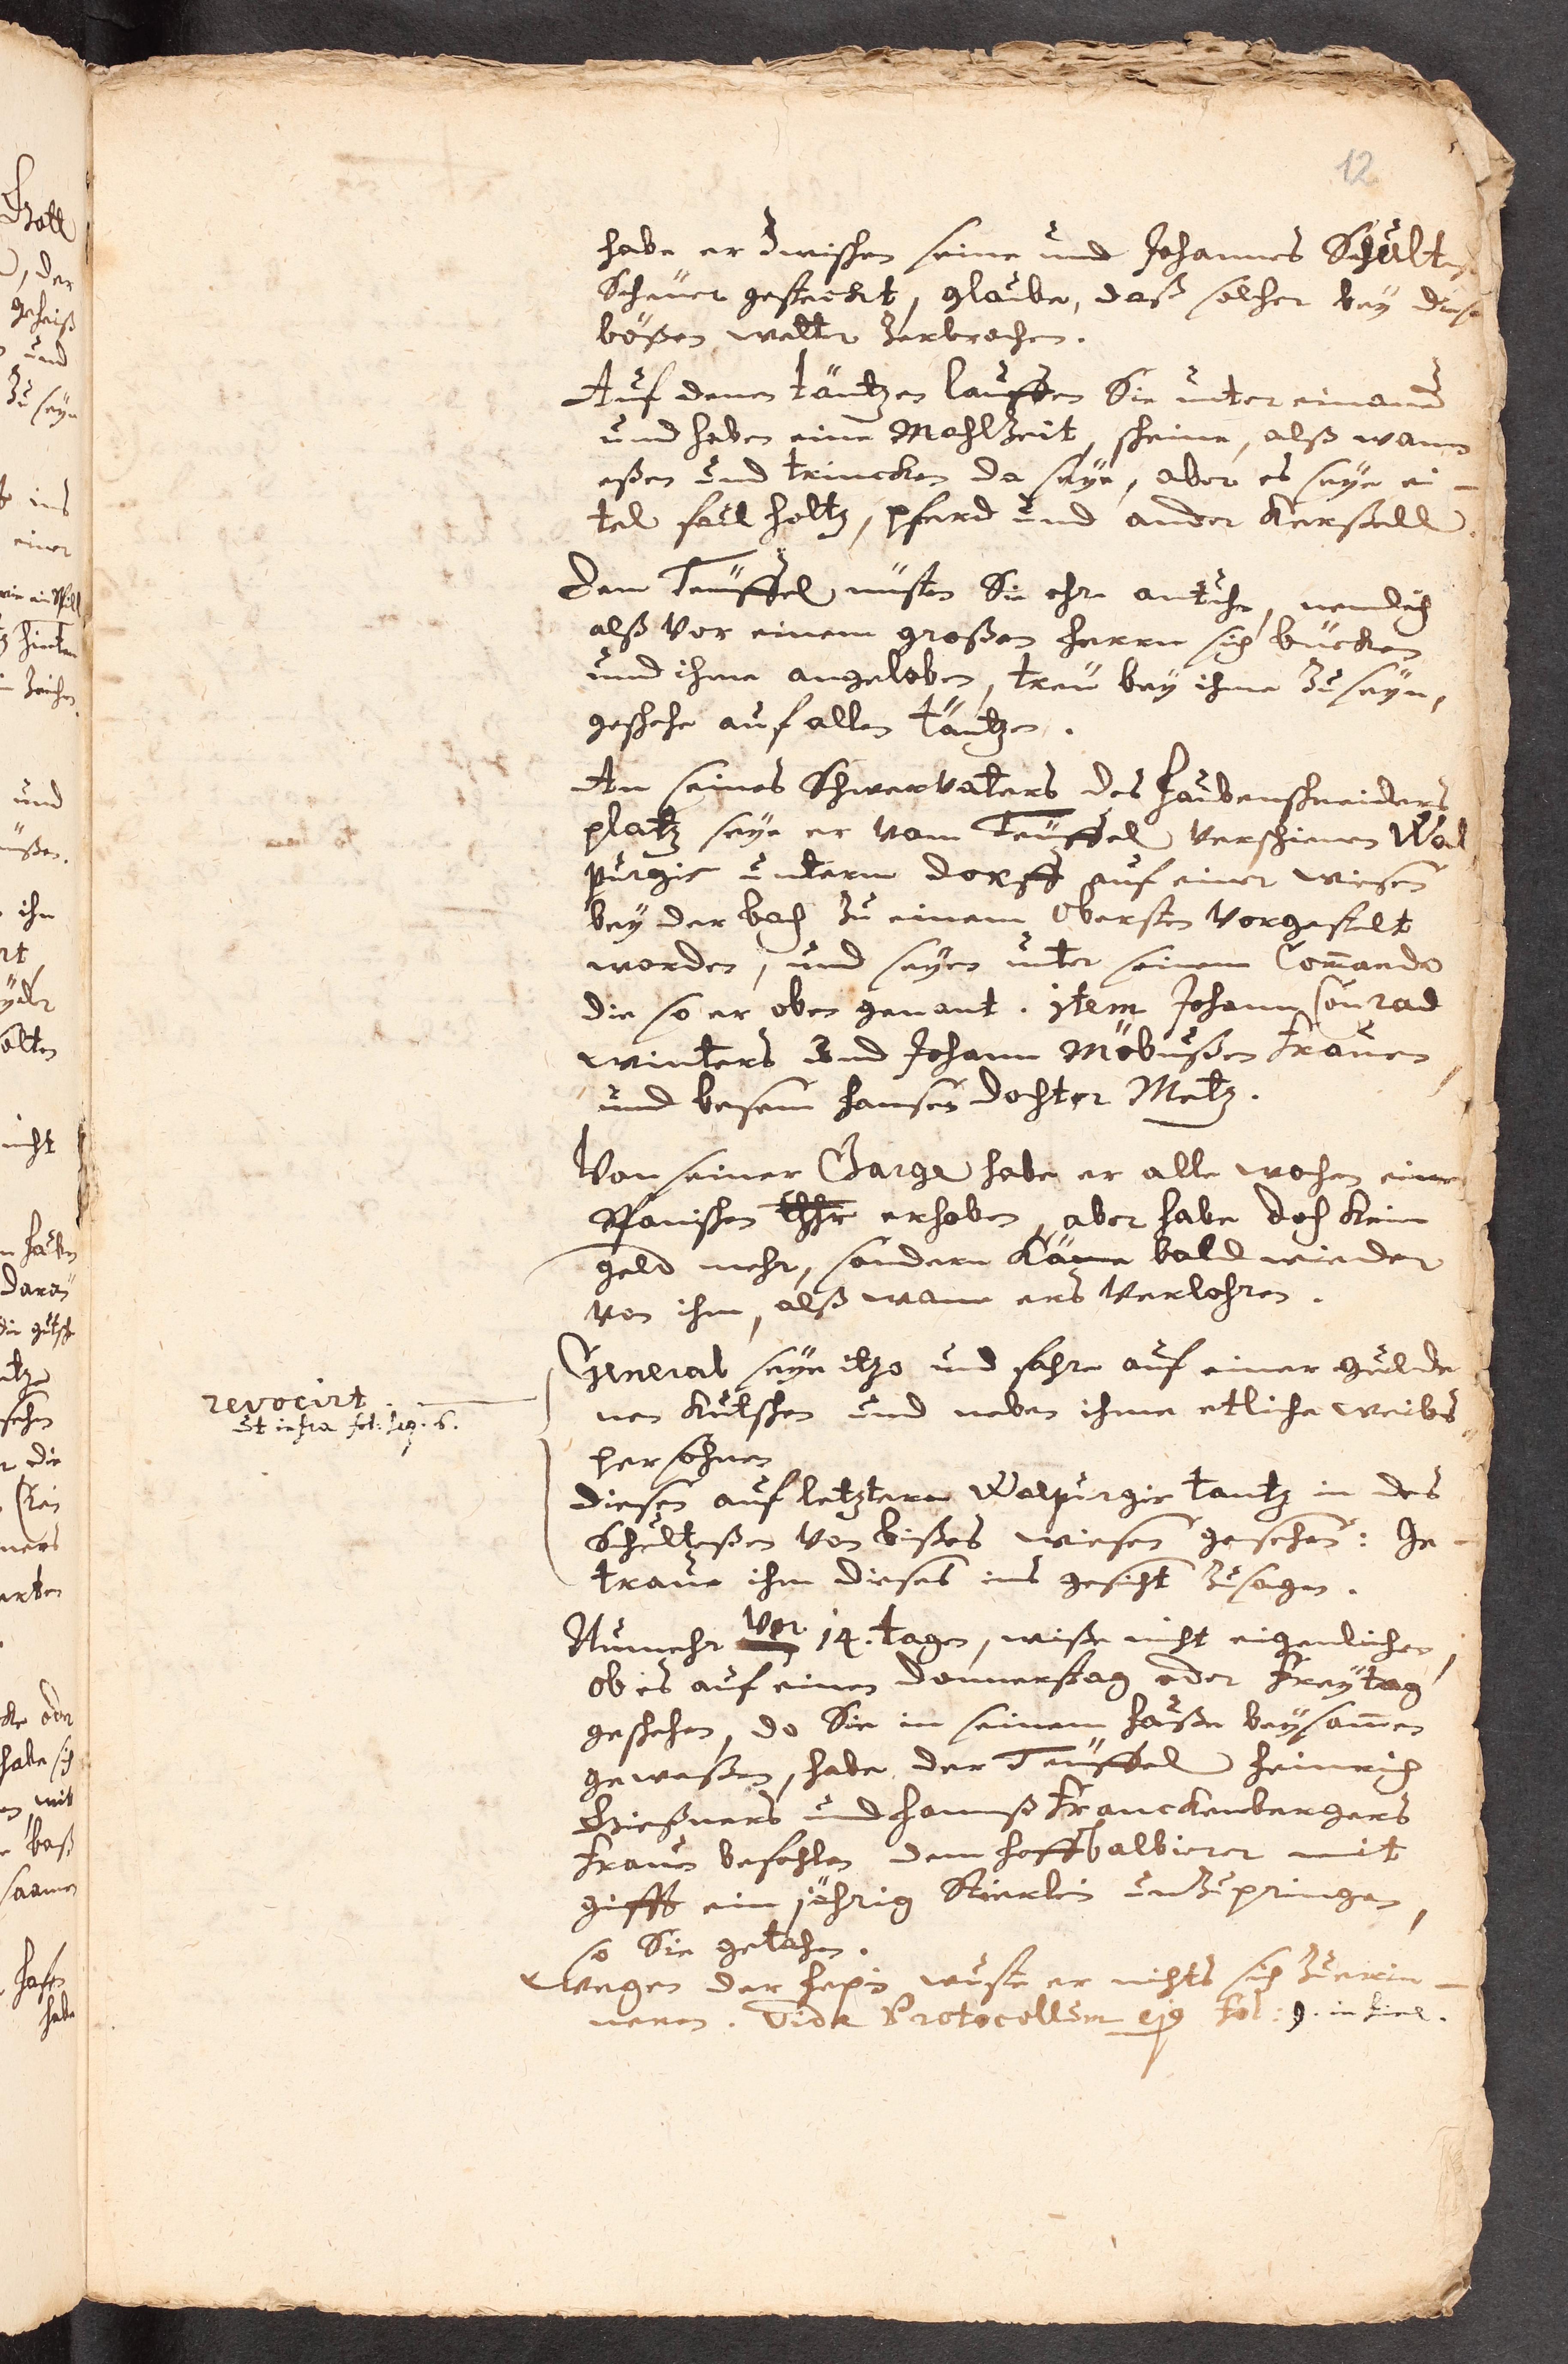 12
habe er zwischen seine und Johannes Schultes
Scheuer gesteckt, glaube, daß solcher bey diesem
bößen wetter zerbrochen.
Auf denen täntzen lauffen Sie unter einand
und haben eine Mahlzeit, scheine, alß wann
eßen und trincken da seye, aber es seye ei-
tel faul holtz, pferd und ander
Dem Teuffel müsten Sie ehr anthun, nemlich
alß vor einem großen herrn sich bücken
und ihme angeloben, treu bey ihme zu seyn,
geschehe auf allen täntzen.
An seines Schwervatters des haubenschneiders
platz seye er vom Teuffel verschienen Wal
purgis unterm dorff auf einer wiesen
bey der bach zu einem Obersten vorgestelt
worden, und seyen unter seinem Commando
die so er oben genant. item Johann Conrad
winters und Johann Möbußen Frauen,
und besem hansen dochter Metz.
Von seiner Charge habe er alle wochen einen
Spanischen thlr erhoben, aber habe doch kein
geld mehr, sondern käme bald wieder
von ihm, alß wann ers verlohren.
General seye itzo und fahre auf einer gulde
nen kutschen und neben ihme etliche weibs
persohnen
revocirt.
ut infra fol: seq. 6.
diesen auf letztern Walpurgis tantz in des
Schulteßen von bißes wiesen gesehen: Ge-
traue ihm dieses ins gesicht zu sagen.
Nunmehr vor 14. tagen, wiße nicht eigendlichen,
ob es auf einen donnerstag oder Freytag
geschehen, do Sie in seinem hauße beysammen
geweßen, habe der Teuffel heinrich
Gießners und hannß Franckenbergers
Frauen befohlen dem hoffbalbierer mit
gifft ein jährig Stierlein umzupringen,
so Sie gethan.
wegen der hepin wuste er nichts sich zu erin-
neren. Vide Protocollum ejus fol: 9. in fine.